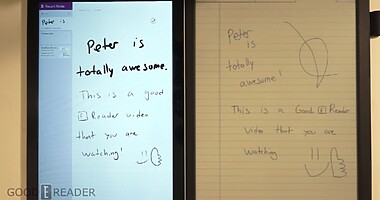 Peter is
Peter is
totally awesome.
This is a good
E Reader video
that you are
watching!
Peter
is
totally
awesome!
This is a Good E Reader
video that you are
watching
GOOD E READER